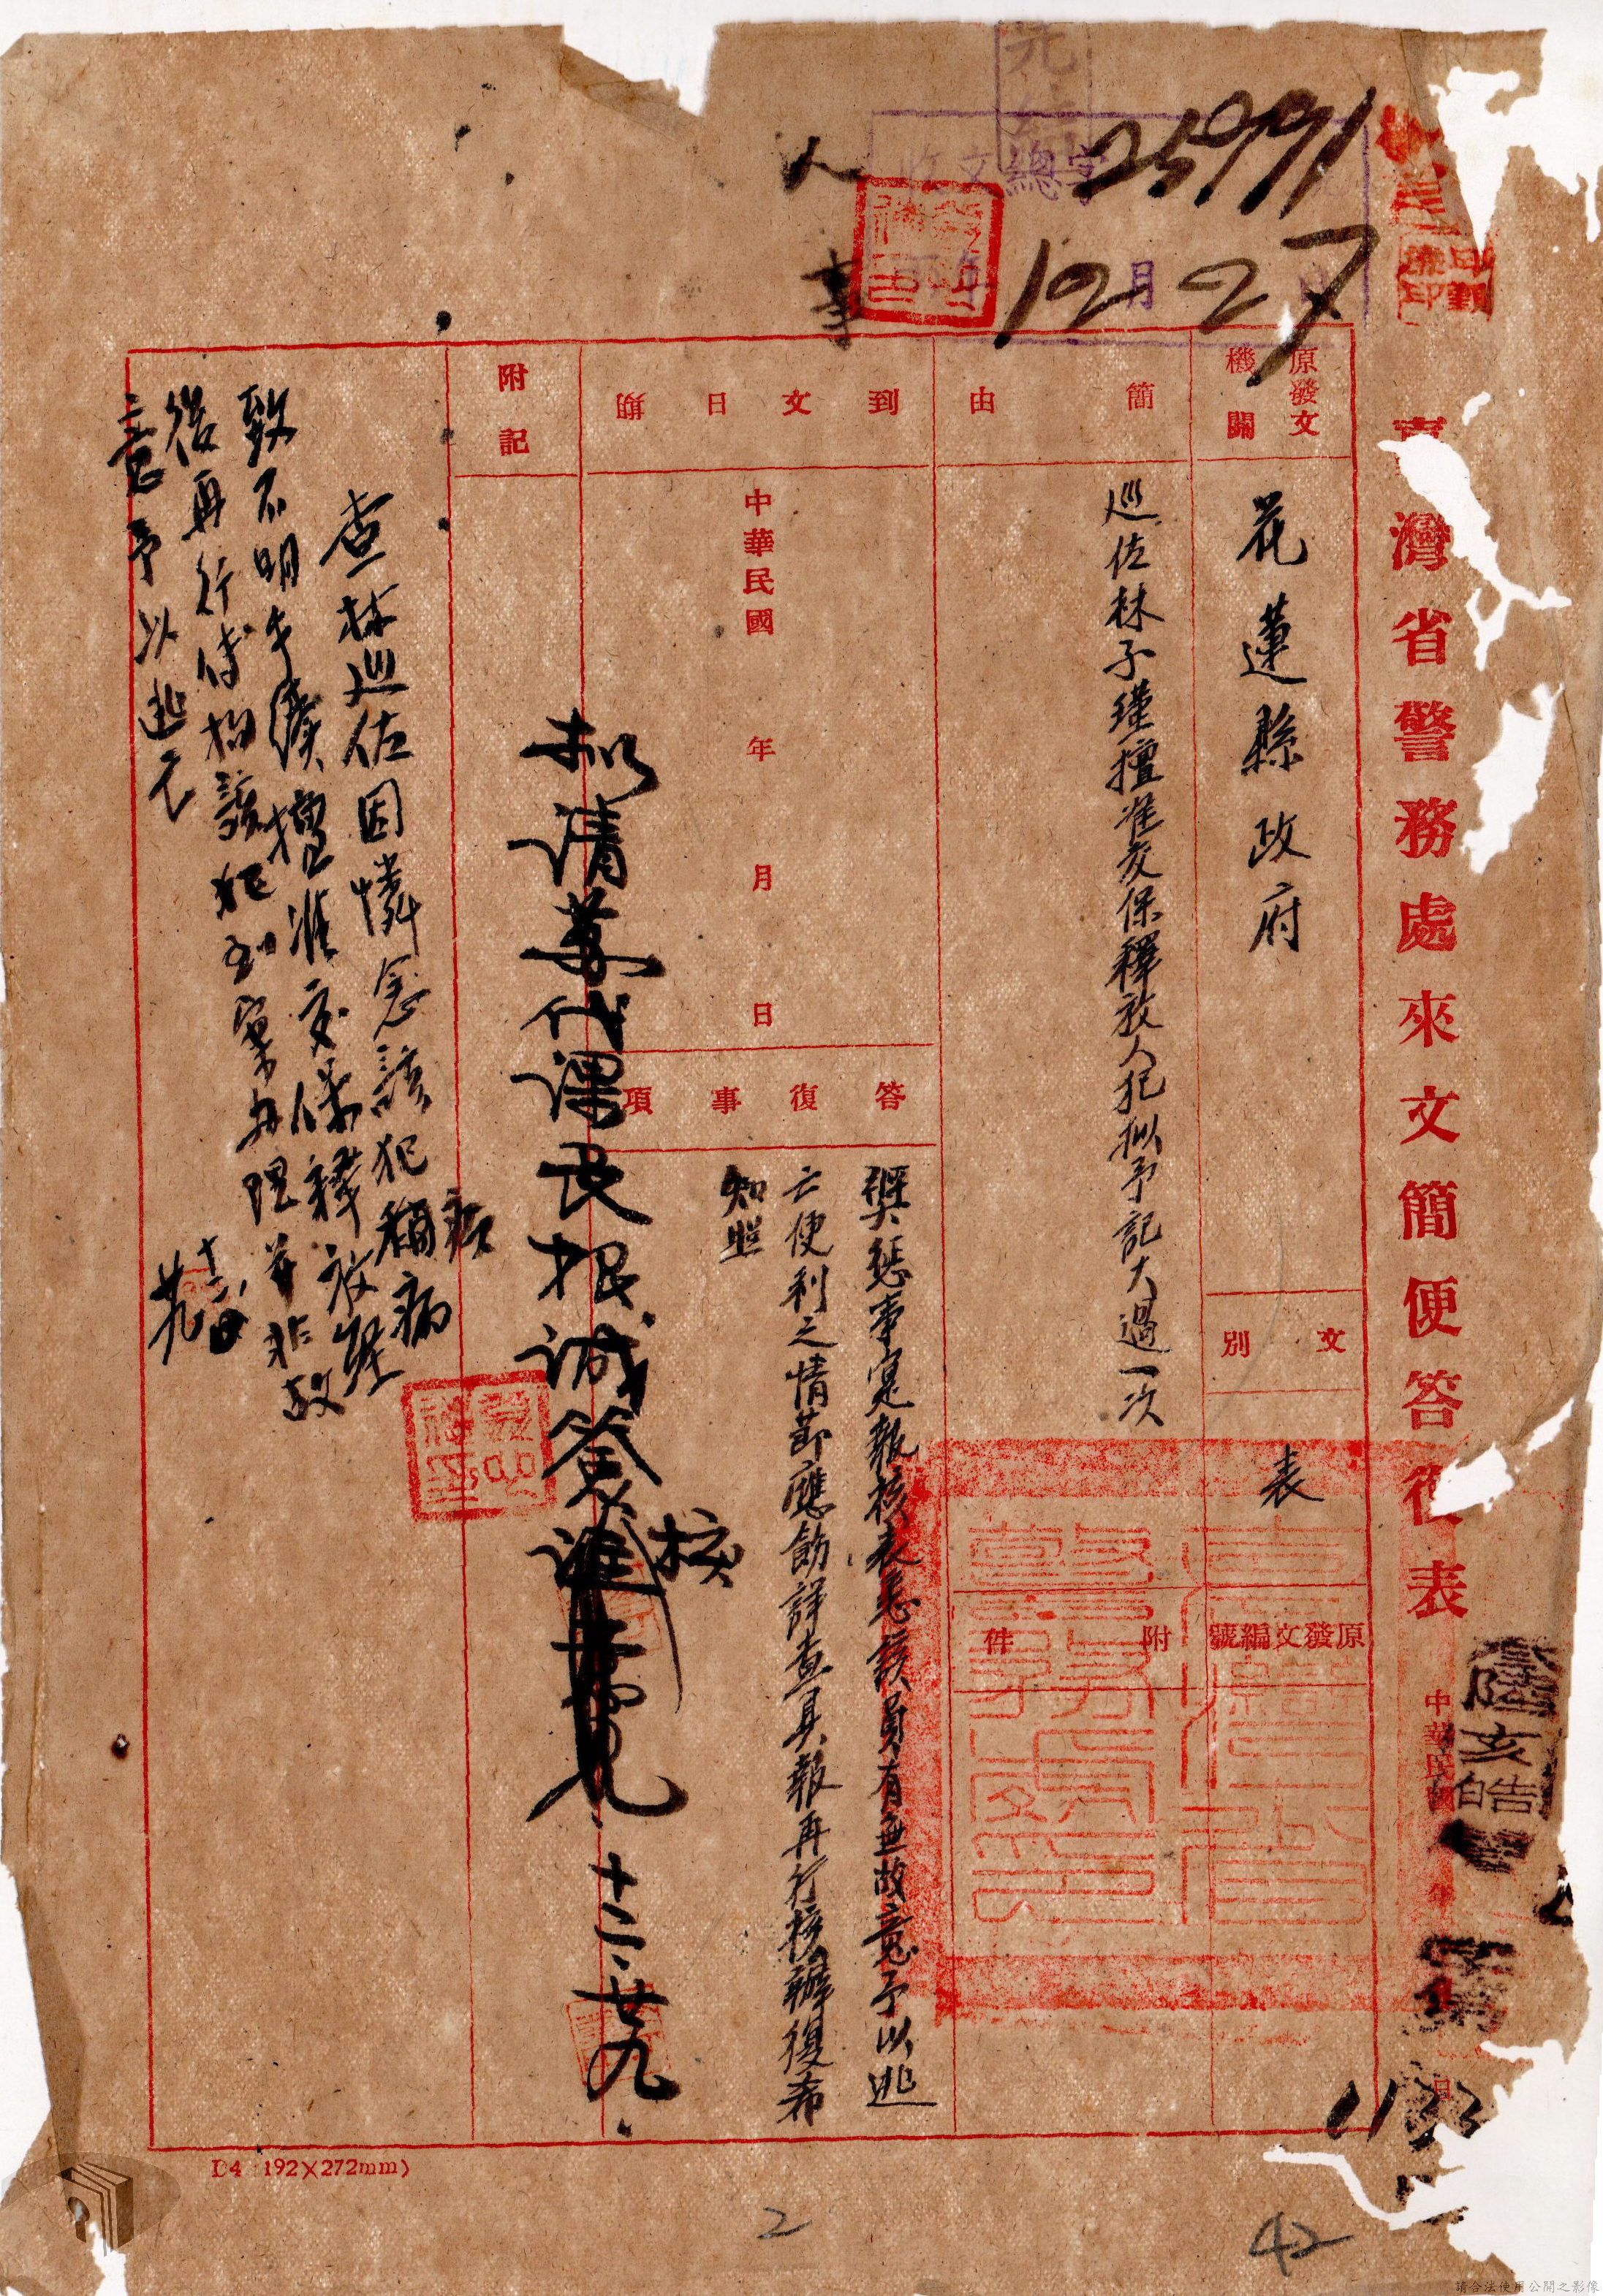 收文總字 25991
12月27日
人事
臺灣省警務處來文簡便答復表
中華民國 年 月 日
陸亥皓
字第
1133
原發文機關
花蓮縣政府
文別
表
原發文編號
簡由
巡佐林子瑾擅准交保釋放人犯拟予記大過一次
附件
到文日期
中華民國 年 月 日
答復事項
獎懲事寔報核表悉該員有無故意予以逃
亡便利之情節應飭詳查具報再行核辦復希
知照
附記
拟请萬代课长根诚签准
核
十二、廿九
查林巡佐因憐念該犯稱病
致不明手續擅准交保釋放經
後再行傳拘該犯到案办理并非故
意予以逃亡
十二
廿九
D4 192×272mm)
2
42
請合法使用公開之影像